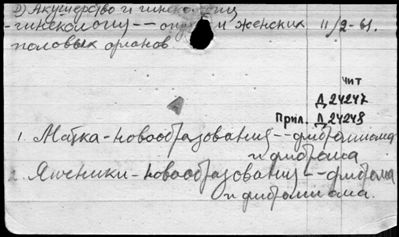 2) Акушерство и гинеколог
-гинекологи -- опух и женских 11/2-61.
половых органов
чит
Д 24247
Прил. Д 24248
1. Матка-новообразования -- фибромиома
и фиброма
2. Яичники-новообразования -- фиброма
и фибромиома.